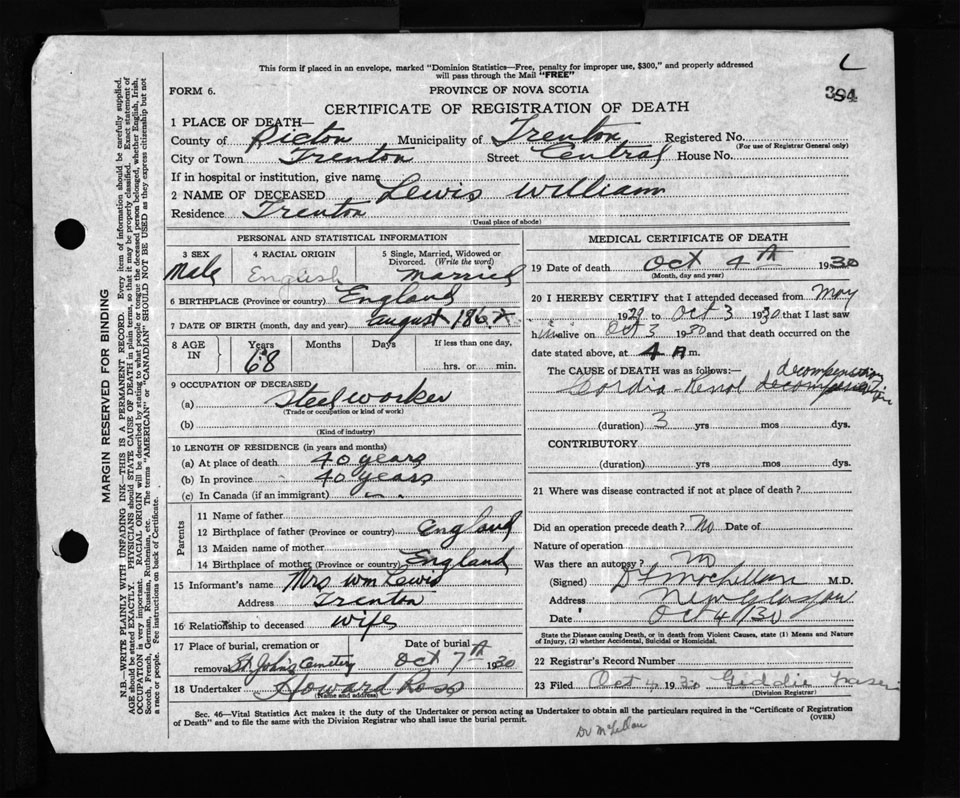 L
This form if placed in an envelope, marked "Dominion Statistics—Free, penalty for improper use, $300," and properly addressed
will pass through the Mail "FREE"
FORM 6. PROVINCE OF NOVA SCOTIA 394
CERTIFICATE OF REGISTRATION OF DEATH
1 PLACE OF DEATH—
County of Pictou Municipality of Trenton Registered No.
(For use of Registrar General only)
City or Town Trenton Street Central House No.
If in hospital or institution, give name
2 NAME OF DECEASED Lewis William
Residence Trenton
(Usual place of abode)
PERSONAL AND STATISTICAL INFORMATION
3 SEX 4 RACIAL ORIGIN 5 Single, Married, Widowed or
Divorced. (Write the word)
Male English Married
6 BIRTHPLACE (Province or country) England
7 DATE OF BIRTH (month, day and year) August 1862
8 AGE IN Years Months Days If less than one day,
68 hrs. or min.
9 OCCUPATION OF DECEASED
(a) Steelworker
(Trade or occupation or kind of work)
(b)
(Kind of industry)
10 LENGTH OF RESIDENCE (in years and months)
(a) At place of death 40 years
(b) In province 40 years
(c) In Canada (if an immigrant)
Parents
11 Name of father
12 Birthplace of father (Province or country) England
13 Maiden name of mother
14 Birthplace of mother (Province or country) England
15 Informant's name Mrs Wm Lewis
Address Trenton
16 Relationship to deceased wife
17 Place of burial, cremation or Date of burial
removal St. John's Cemetery Oct 7th 1930
18 Undertaker Howard Ross
(Name and address)
MEDICAL CERTIFICATE OF DEATH
19 Date of death Oct 4th 1930
(Month, day and year)
20 I HEREBY CERTIFY that I attended deceased from May
1929 to Oct 3 1930 that I last saw
him alive on Oct 3 1930 and that death occurred on
date stated above, at 4 A m.
The CAUSE of DEATH was as follows:— decompensation
Cardio-Renal
(duration) 3 yrs mos dys.
CONTRIBUTORY
(duration) yrs mos dys.
21 Where was disease contracted if not at place of death?
Did an operation precede death? No Date of
Nature of operation
Was there an autopsy? No
(Signed) McLellan M.D.
Address New Glasgow
Date Oct 4/30
State the Disease causing Death, or in death from Violent Causes, state (1) Means and Nature
of Injury, (2) whether Accidental, Suicidal or Homicidal.
22 Registrar's Record Number
23 Filed Oct 4 1930 Geddie Fraser
(Division Registrar)
Sec. 46—Vital Statistics Act makes it the duty of the Undertaker or person acting as Undertaker to obtain all the particulars required in the "Certificate of Registration
of Death" and to file the same with the Division Registrar who shall issue the burial permit. (OVER)
Dr McLellan
MARGIN RESERVED FOR BINDING
N.B.—WRITE PLAINLY WITH UNFADING INK—THIS IS A PERMANENT RECORD. Every item of information should be carefully supplied.
AGE should be stated EXACTLY. PHYSICIANS should STATE CAUSE OF DEATH in plain terms, so that it may be properly classified. Exact statement of
OCCUPATION is very important. RACIAL ORIGIN will be described by stating to what people or tongue the deceased person belonged, whether English, Irish,
Scotch, French, German, Russian, Ruthenian, etc. The terms "AMERICAN" or "CANADIAN" SHOULD NOT BE USED as they express citizenship but not
a race or people. Fee instructions on back of Certificate.